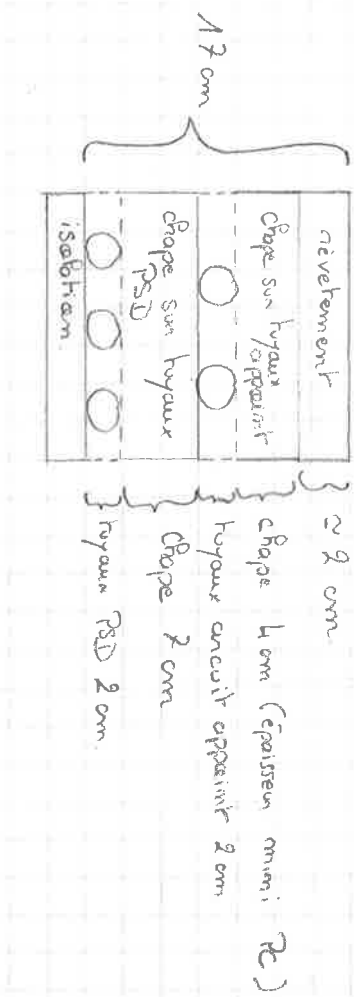 17 cm
revêtement
chape sur tuyaux appoint
chape sur tuyaux PSD
isolation
≈ 2 cm
chape 4 cm (épaisseur mini PC)
tuyaux circuit appoint 2 cm
chape 7 cm
tuyaux PSD 2 cm